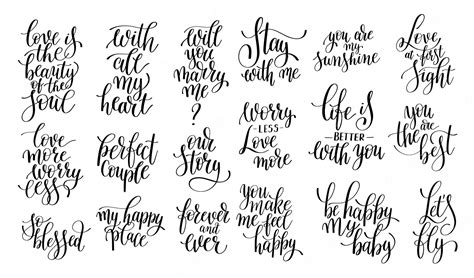 love is
the
beauty
of the
soul
with
all
my
heart
will
you
marry
me
?
Stay
with me
you are
my
sunshine
Love
at first
Sight
love
more
worry
less
perfect
couple
our
Story
worry
- LESS -
Love
more
life is
- BETTER -
with you
you
are
the best
so
blessed
my happy
place
forever
and
ever
you
make
me feel
happy
be happy
my
baby
Let's
fly